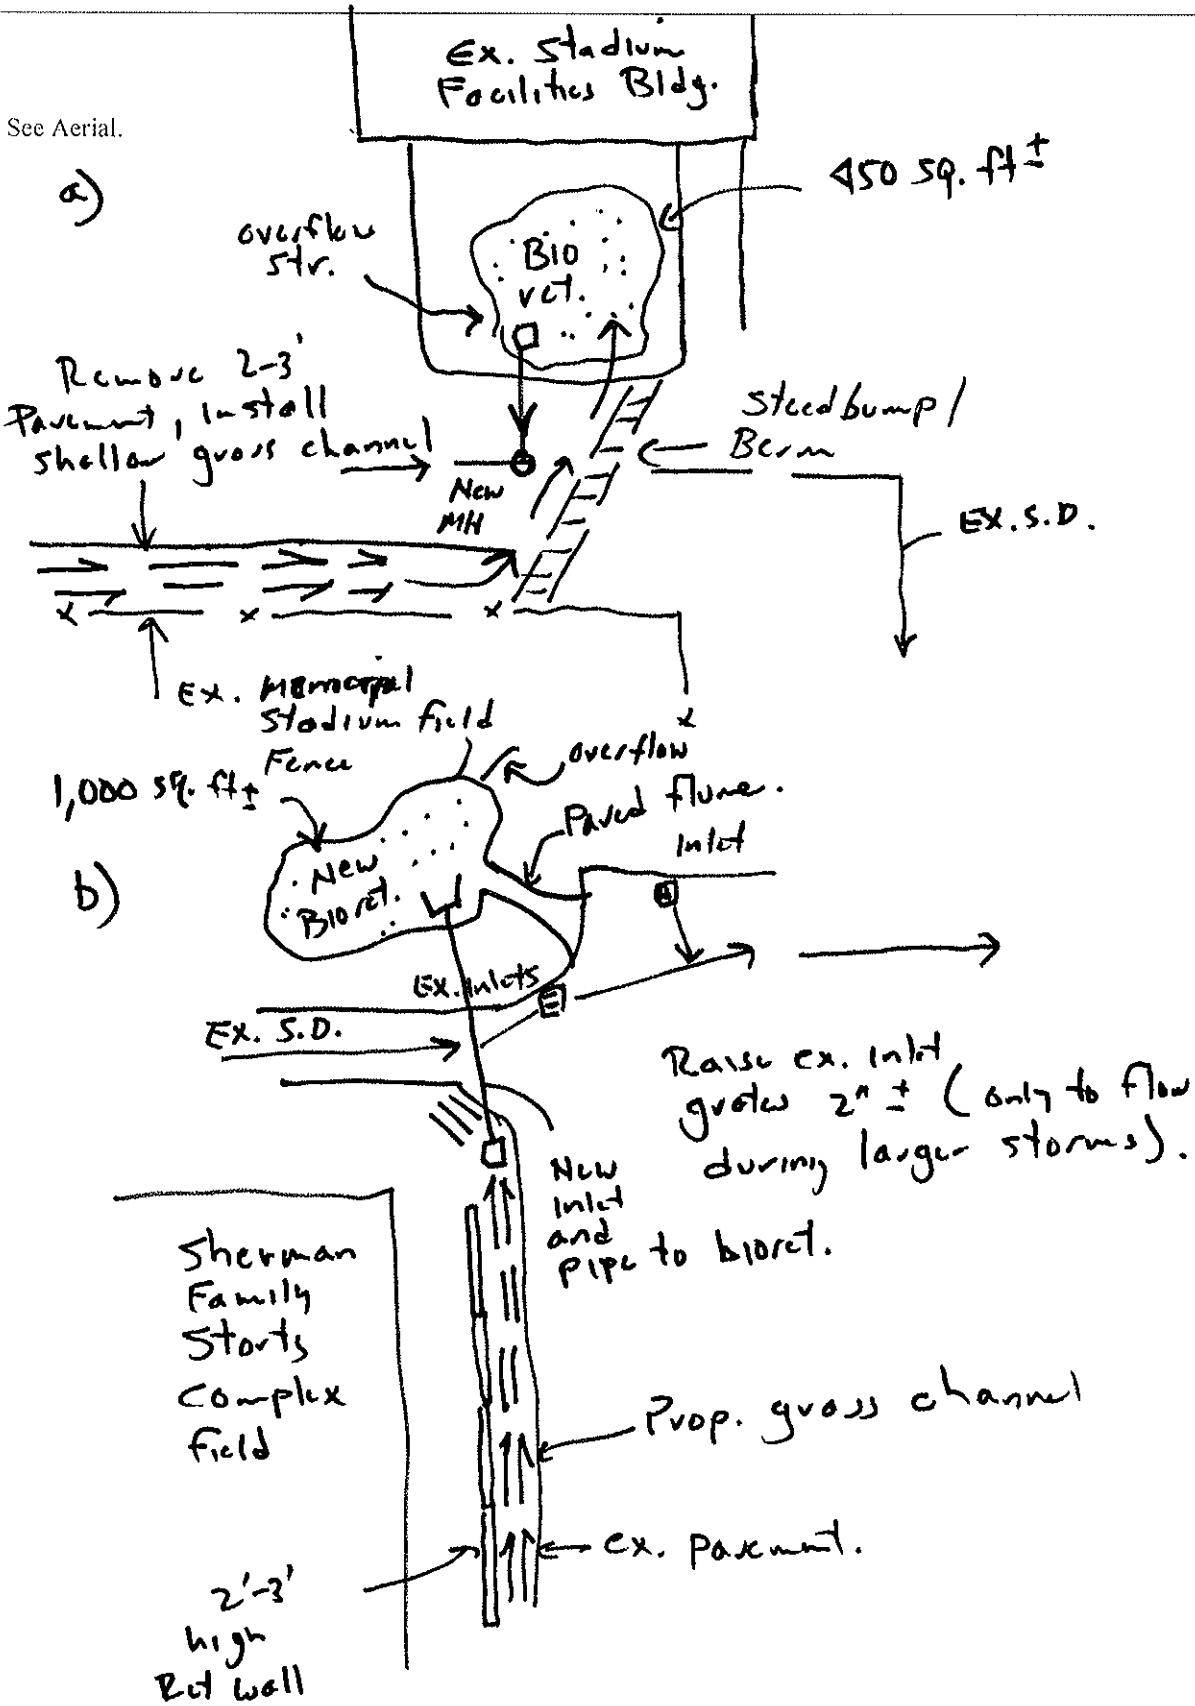 Ex. Stadium
Facilities Bldg.
See Aerial.
a)
450 sq. ft ±
overflow
str.
Bio
ret.
Remove 2-3'
Pavement, install
shallow grass channel
Speedbump/
Berm
New
MH
EX. S.D.
x x x
x
Ex. Memorial
Stadium field
Fence
overflow
1,000 sq. ft ±
Paved flume.
Inlet
b)
New
Bioret.
Ex. Inlets
Ex. S.D.
Raise ex. inlet
grates 2" ± (only to flow
during larger storms).
New
inlet
and
pipe to bioret.
Sherman
Family
Sports
Complex
field
Prop. grass channel
ex. pavement.
2'-3'
high
Ret wall